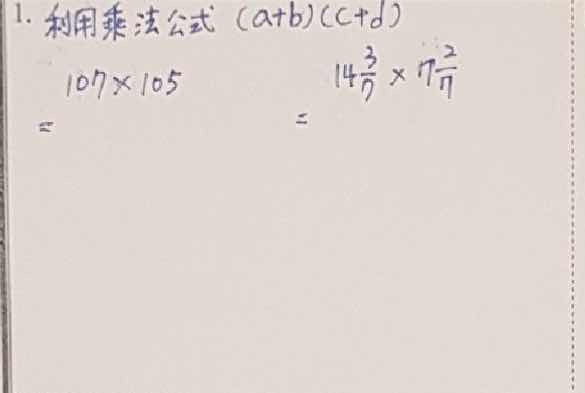 1. 利用乘法公式 (a+b)(c+d)
107×105 14 3/7 × 7 2/7
= =